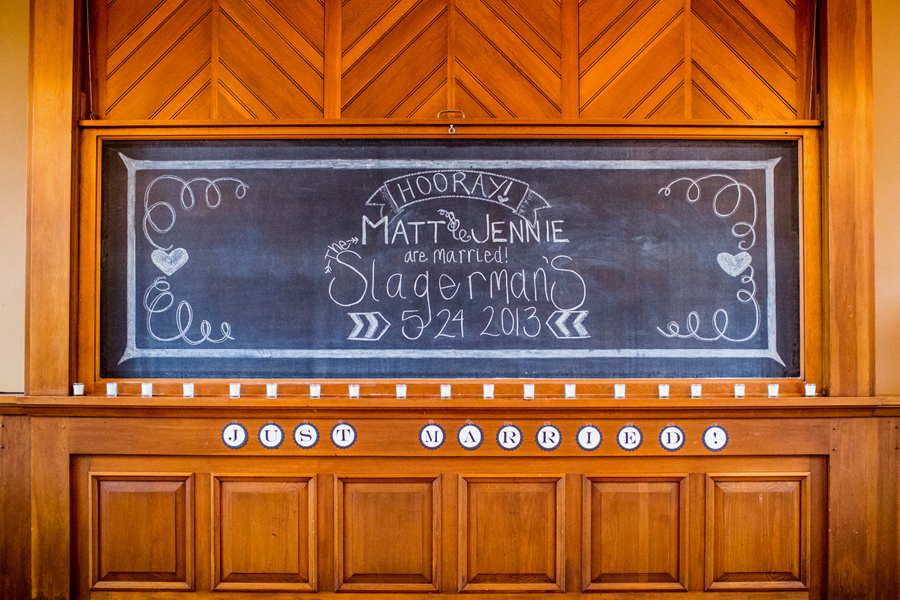 HOORAY!
MATT & JENNIE
are married!
the
Slagerman's
5 24 2013
JUST MARRIED!